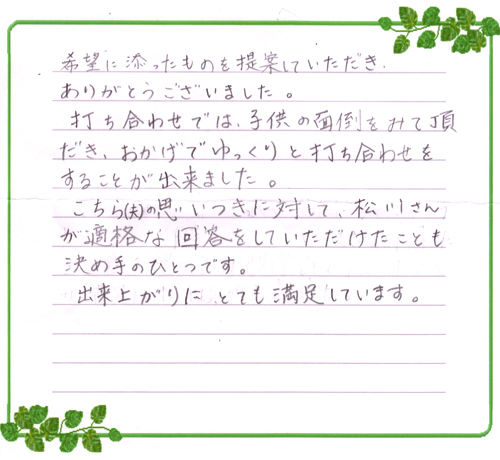 希望に添ったものを提案していただき、
ありがとうございました。
打ち合わせでは、子供の面倒をみて頂
だき、おかげでゆっくりと打ち合わせを
することが出来ました。
こちら(夫)の思いつきに対して、松川さん
が適格な回答をしていただけたことも
決め手のひとつです。
出来上がりにとても満足しています。